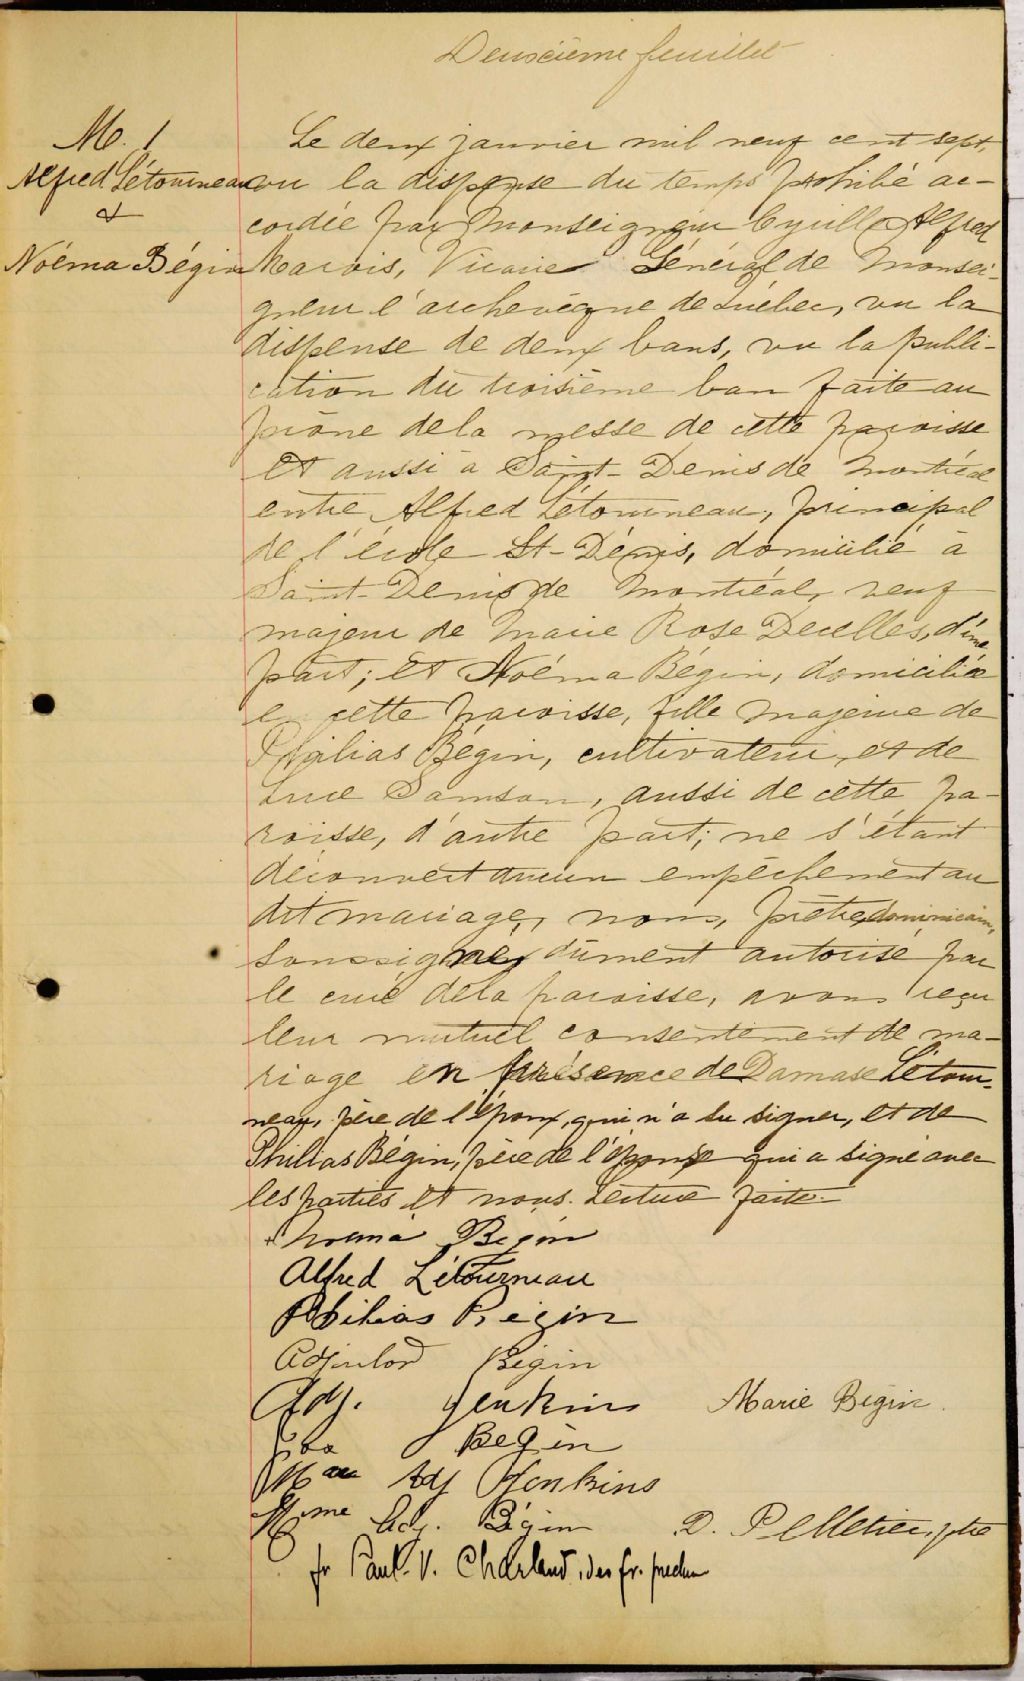 Deuxième feuillet
M. 1
Alfred Létourneau
&
Noéma Bégin
Le deux janvier mil neuf cent sept,
vu la dispense du temps prohibé ac-
cordée par Monseigneur Cyrille Alfred
Marois, Vicaire Général de Monsei-
gneur l'archevêque de Québec, vu la
dispense de deux bans, vu la publi-
cation du troisième ban faite au
prône de la messe de cette paroisse
et aussi à Saint-Denis de Montréal
entre Alfred Létourneau, principal
de l'école St-Dénis, domicilié à
Saint-Denis de Montréal, veuf
majeur de Marie Rose Decelles, d'une
part; et Noéma Bégin, domiciliée
en cette paroisse, fille majeure de
Philias Bégin, cultivateur, et de
Luce Samson, aussi de cette pa-
roisse, d'autre part; ne s'étant
découvert aucun empêchement au
dit mariage, nous, prêtre, dominicain,
soussigné, dûment autorisé par
le curé de la paroisse, avons reçu
leur mutuel consentement de ma-
riage en présence de Damase Létour-
neau, père de l'époux, qui n'a su signer, et de
Philias Bégin, père de l'épouse qui a signé avec
les parties et nous. Lecture faite.
Noéma Bégin
Alfred Létourneau
Philias Bégin
Adjutor Bégin
Adj. Jenkins Marie Bégin.
Bégin
Adj Jenkins
Mme Adj. Bégin D. Pelletier, ptre
fr Paul-V. Charland, des fr. prech